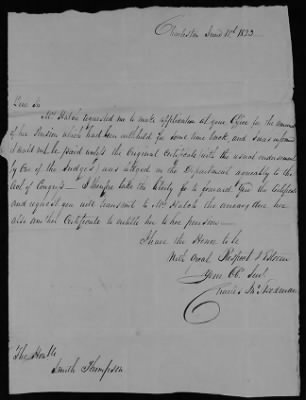 Charleston June 11th 1823
Dear Sir
Mrs Hatch requested me to make application at your Office for the amount
of her Pension which had been withheld for some time back, and I was informed
it would not be paid unless the Original Certificate (with the usual endorsement
by One of the Judges) was lodged in the Department agreeably to the
Act of Congress — I therefore take the liberty to forward you the Certificate
and request you will transmit to Mrs Hatch the money due her
also another Certificate to entitle her to her pension —
I have the Honor to be
With Great Respect & Esteem
Your Ob. Servt
Charles
The Honble
Smith Thompson